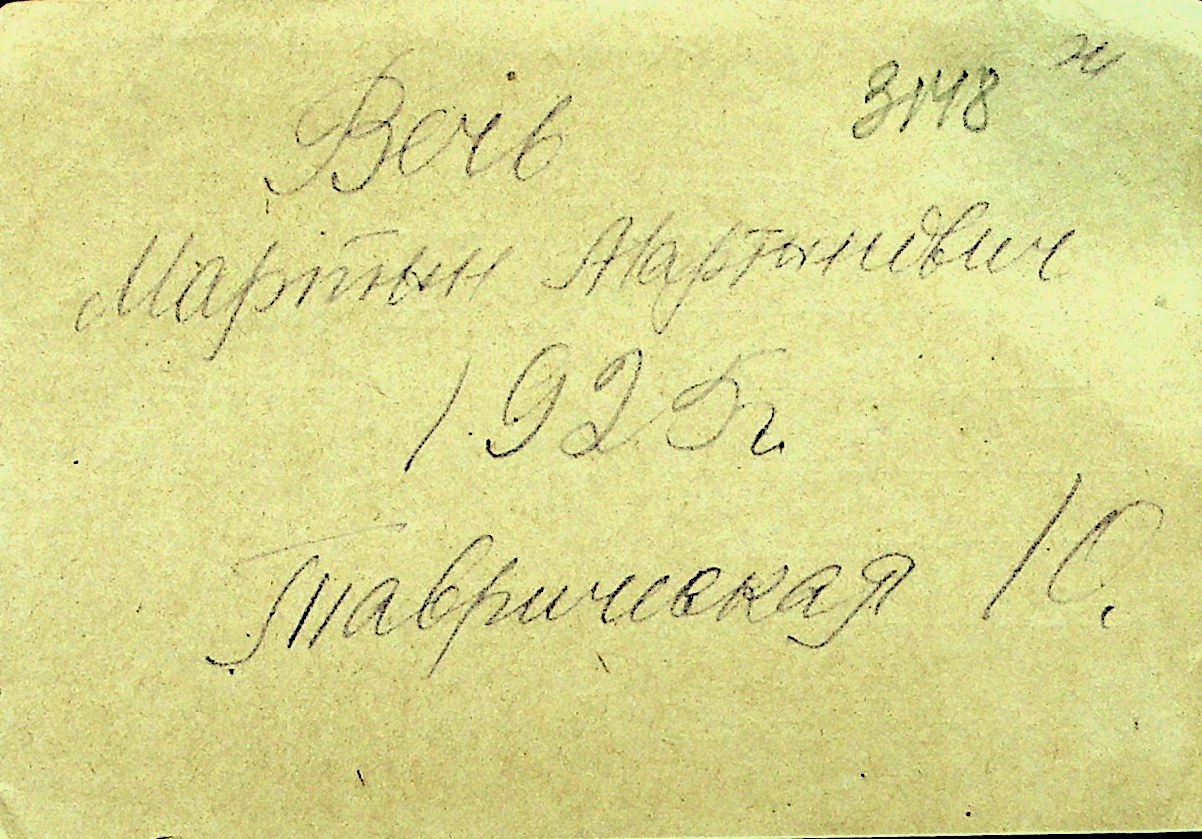 3148 н
Вечь
Мартын Мартынович
1925г
Таврическая 10.